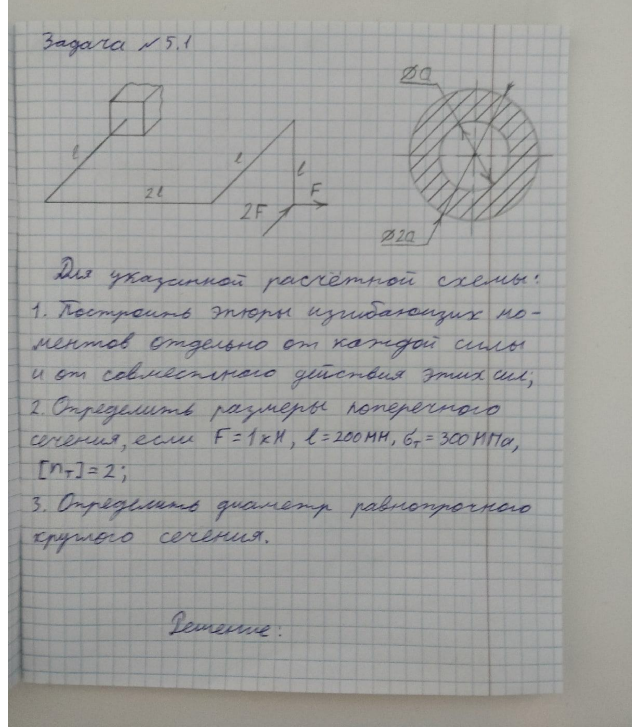 Задача №5.1
l
2l
l
l
F
2F
⌀a
⌀2a
Для указанной расчётной схемы:
1. Построить эпюры изгибающих мо-
ментов отдельно от каждой силы
и от совместного действия этих сил;
2. Определить размеры поперечного
сечения, если F = 1кН, l = 200мм, σт = 300МПа,
[nт] = 2;
3. Определить диаметр равнопрочного
круглого сечения.
Решение: